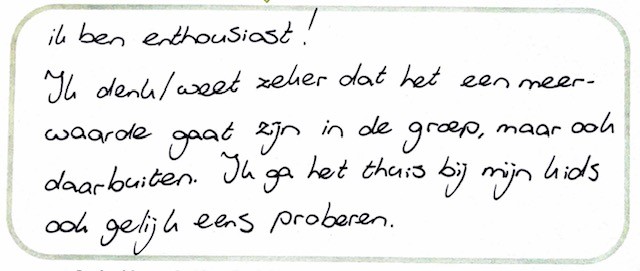 ik ben enthousiast!
Ik denk/weet zeker dat het een meer-
waarde gaat zijn in de groep, maar ook
daarbuiten. Ik ga het thuis bij mijn kids
ook gelijk eens proberen.